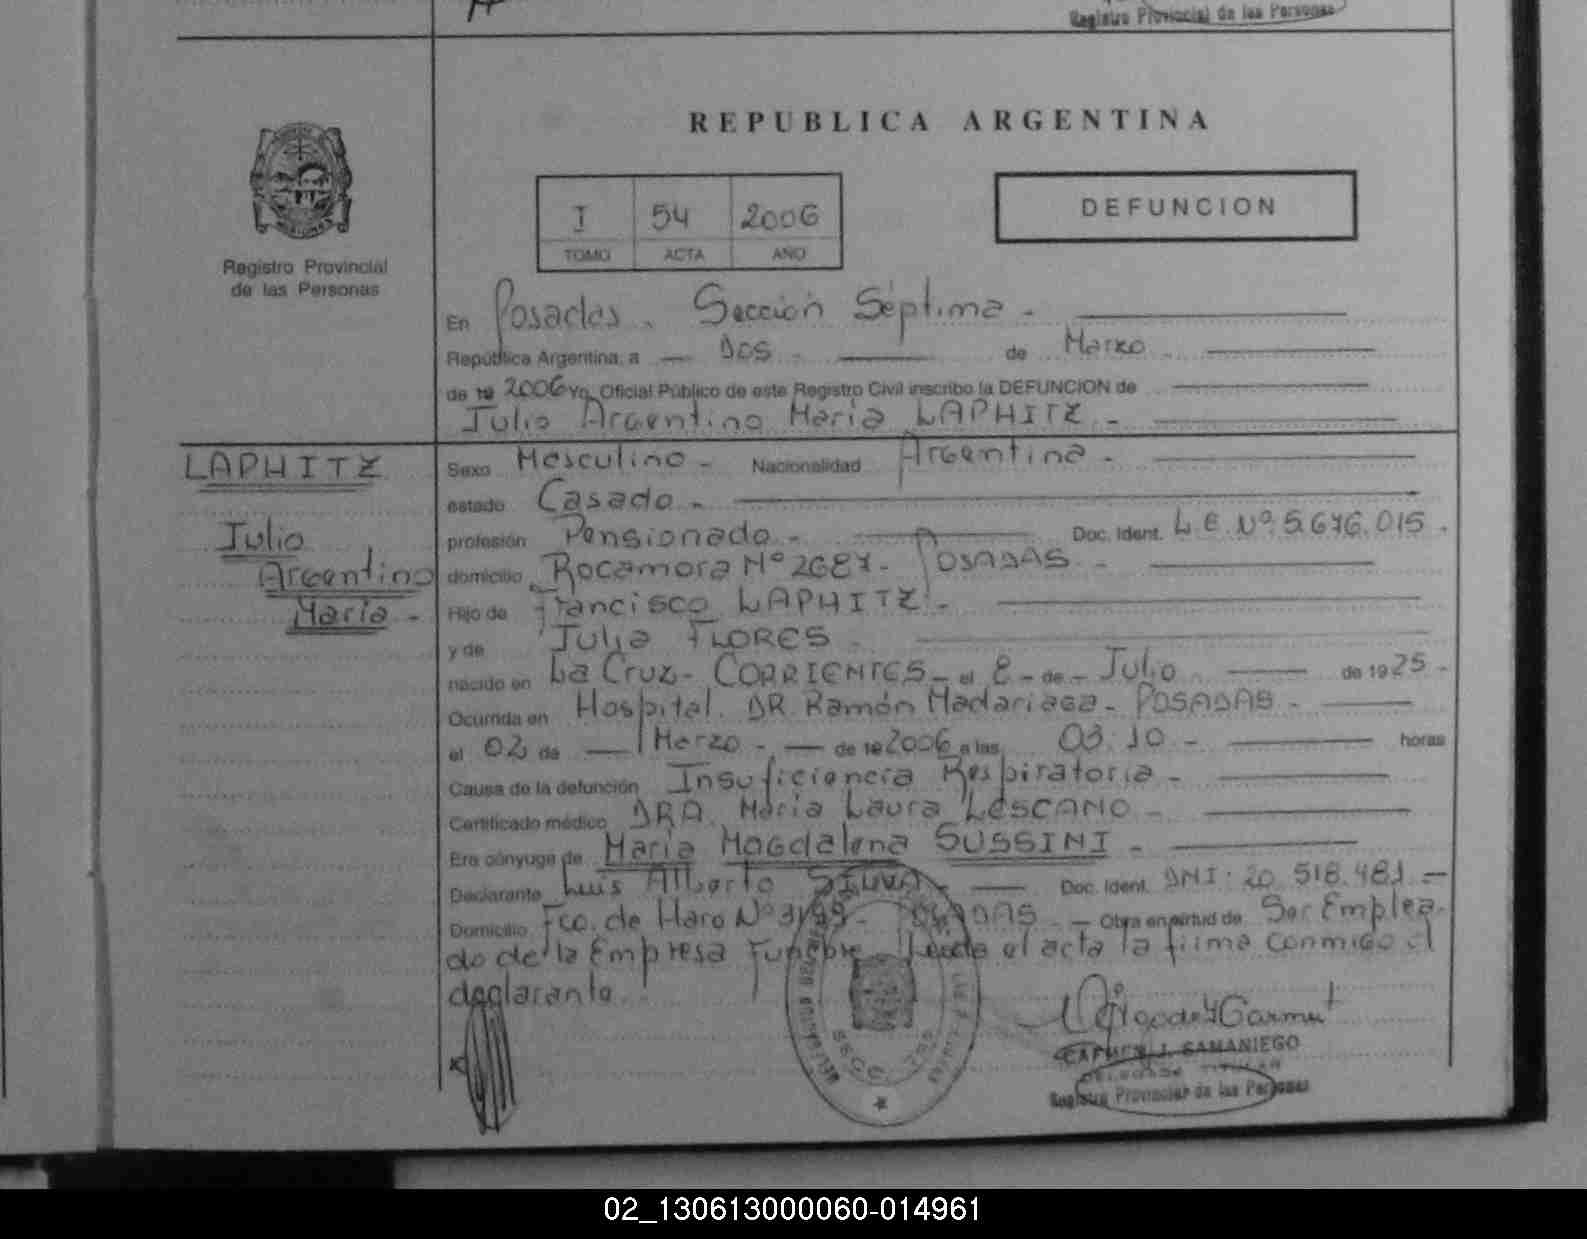 Registro Provincial de las Personas
REPUBLICA ARGENTINA
I 54 2006
TOMO ACTA AÑO
DEFUNCION
Registro Provincial
de las Personas
En Posadas. Sección Séptima.
República Argentina, a Dos de Marzo
de 19 2006 Yo, Oficial Público de este Registro Civil inscribo la DEFUNCION de
Julio Argentino María LAPHITZ.-
LAPHITZ
Julio
Argentino
María.-
Sexo Masculino- Nacionalidad Argentina.-
estado Casado.-
profesión Pensionado.- Doc. Ident. L.E. Nº 5.676.015.
domicilio Rocamora Nº 2687- POSADAS.-
Hijo de Francisco LAPHITZ.-
y de Julia FLORES.
nacido en La Cruz- CORRIENTES- el 8- de- Julio de 1925-
Ocurrida en Hospital. DR. Ramón Madariaga- POSADAS-
el 02 de Marzo.- de 19 2006 a las 03.10- horas
Causa de la defunción Insuficiencia Respiratoria-
Certificado médico DRA. María Laura LESCANO-
Era cónyuge de María Magdalena SUSSINI-
Declarante Luis Alberto SILVA- Doc. Ident. DNI: 20.518.481.-
Domicilio Fco. de Haro Nº POSADAS.- Obra en virtud de Ser Emplea-
do de la Empresa Funebre. Leida el acta la firma conmigo el
declarante.
CARMEN J. SAMANIEGO
DELEGADA TITULAR
Registro Provincial de las Personas
02_130613000060-014961